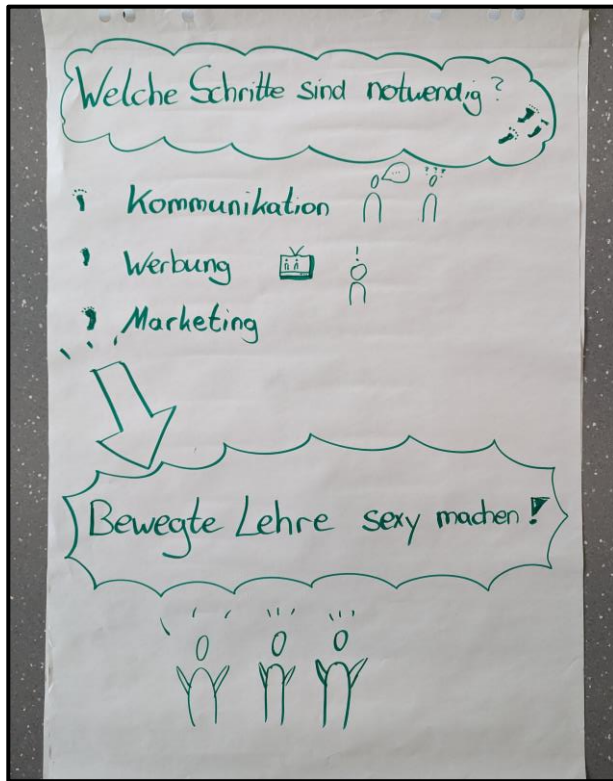 Welche Schritte sind notwendig?
Kommunikation
Werbung
Marketing
Bewegte Lehre sexy machen!